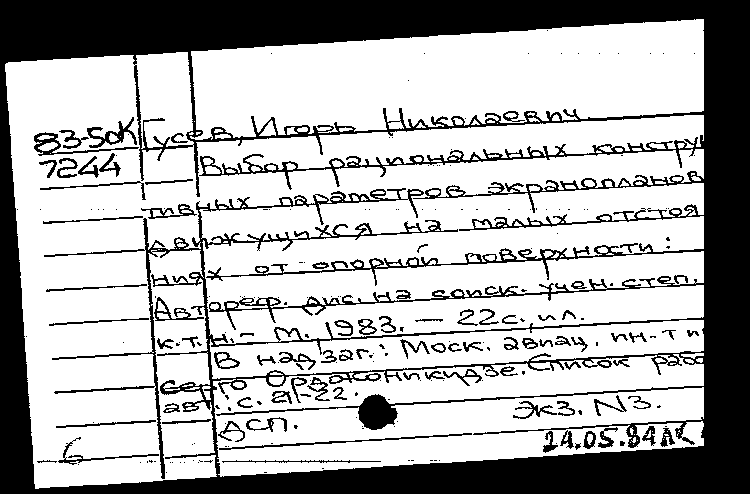 83-50К Гусев, Игорь Николаевич.
7244 Выбор рациональных констру
тивных параметров экранопланов
движущихся на малых отстоя
ниях от опорной поверхности:
Автореф. дис. на соиск. учен. степ.
к.т.н. - М., 1983. - 22с., ил.
В надзаг.: Моск. авиац. ин-т
Серго Орджоникидзе. Список рабо
авт.: с. 21-22.
ДСП. Экз. N3.
6 24.05.84